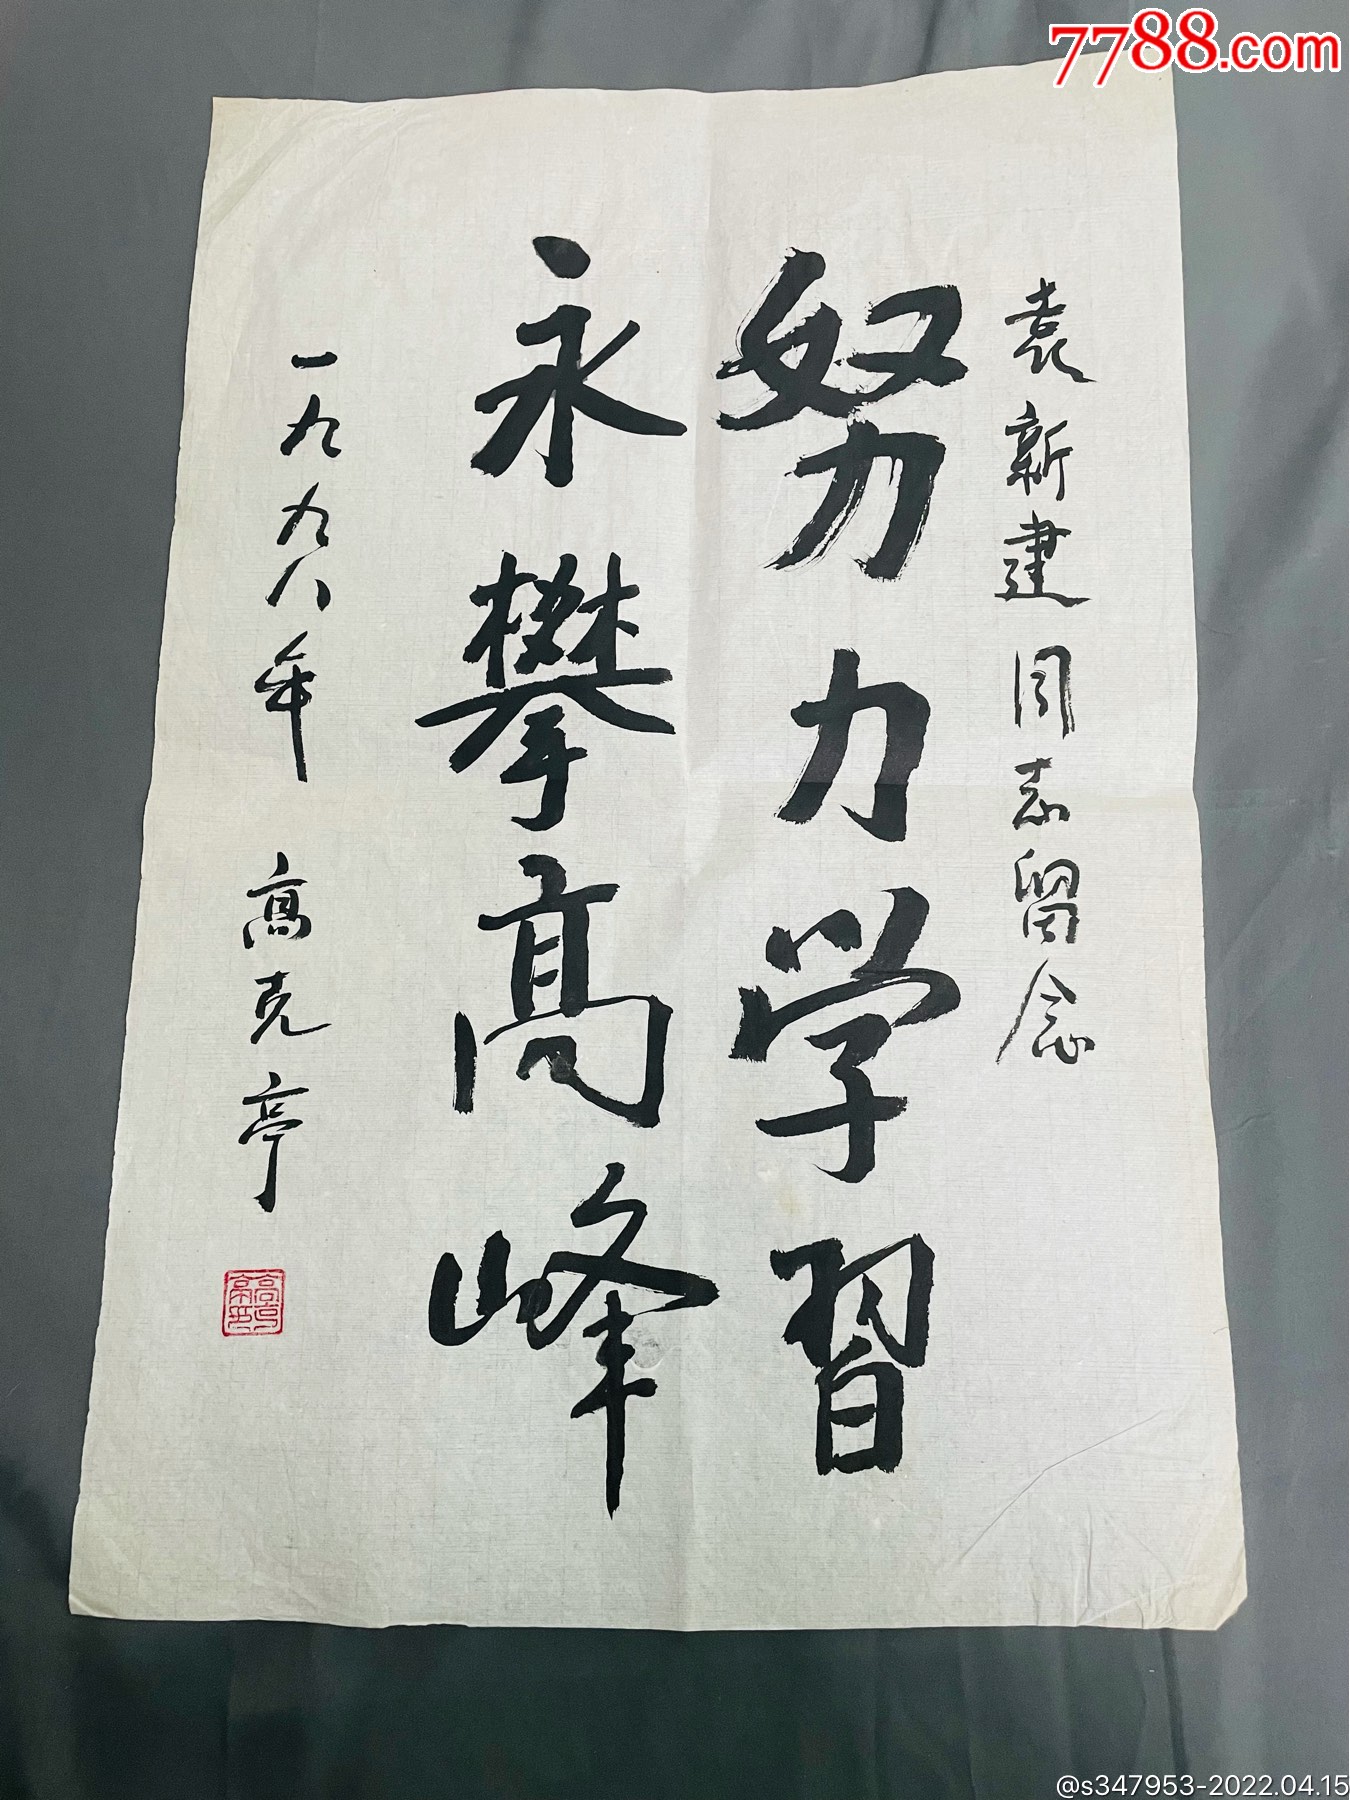 7788.com
袁新建同志留念
努力学习
永攀高峰
一九九八年 高克亭
@s347953-2022.04.15